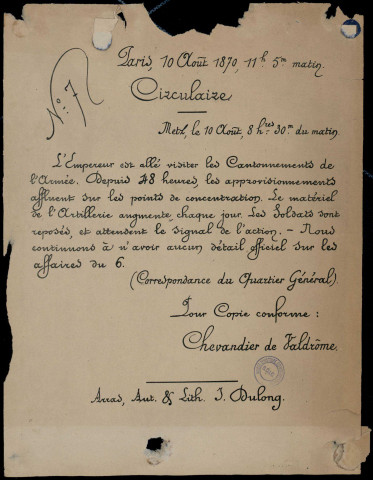 N.º 7
Paris, 10 Août 1870, 11h 5m matin.
Circulaire
Metz, le 10 Août, 8hres 30m du matin
L'Empereur est allé visiter les Cantonnements de
l'Armée. Depuis 48 heures, les approvisionnements
affluent sur les points de concentration. Le matériel
de l'Artillerie augmente chaque jour. Les Soldats sont
reposés, et attendent le signal de l'action. – Nous
continuons à n'avoir aucun détail officiel sur les
affaires du 6.
(Correspondance du Quartier Général)
Pour Copie conforme :
Chevandier de Valdrôme.
Arras, Aut. & Lith. J. Dulong.